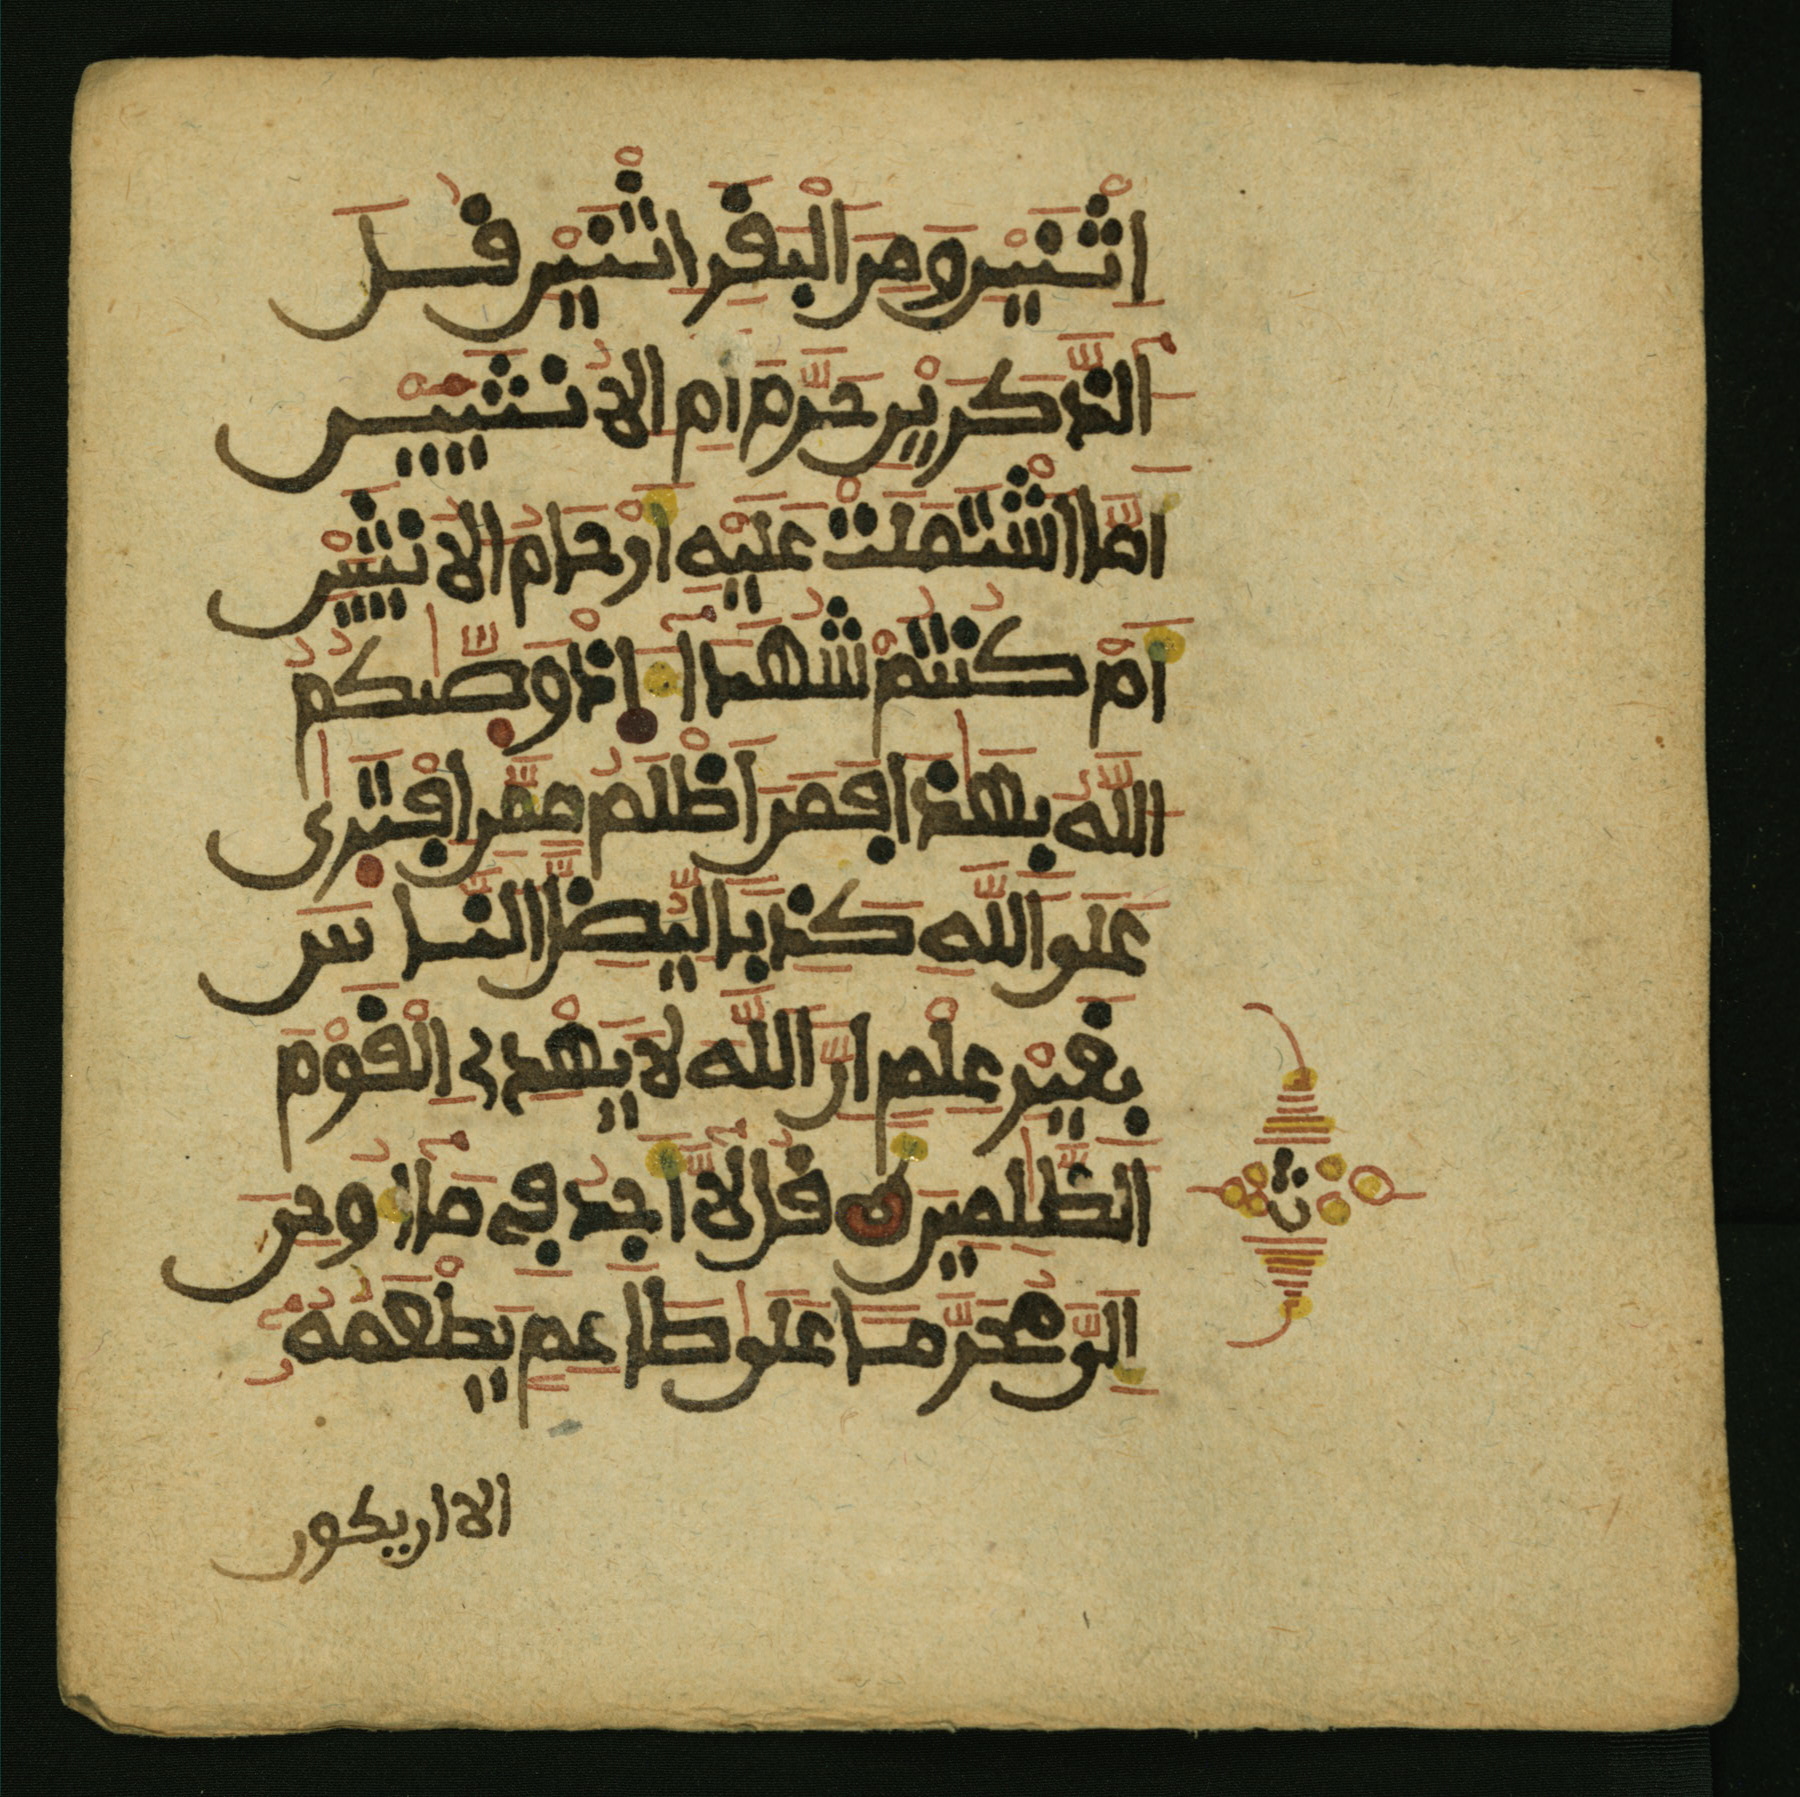 اِثْنَيْنِ وَمِنَ الْبَقَرِ اِثْنَيْنِ قُلَ
آلذَّكَرَيْنِ حَرَّمَ اَمِ الُانثَيَيْنِ
اَمَّا اَشْتَمَلَتْ عَلَيْهِ أَرْحَامُ الُانثَيَيْنِ
اَمْ كُنتُمْ شُهَدَآءَ اِذْ وَصّٰيكُمُ
اللَّهُ بِهَٰذَا فَمَنَ اَظْلَمُ مِمَّنِ افْتَرٰى
عَلَى اللَّهِ كَذِباً لِّيُضِلَّ النَّاسَ
بِغَيْرِ عِلْمٍ اِنَّ اللَّهَ لَا يَهْدِى الْقَوْمَ
الظَّٰلِمِينَ قُل لَّآ أَجِدُ فِى مَآ أُوحِىَ
إِلَىَّ مُحَرَّماً عَلَىٰ طَاعِمٍ يَطْعَمُهُۥٓ
الا ان يكون